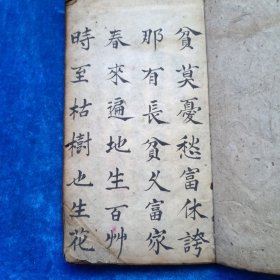 貧莫憂愁富休誇
那有長貧久富家
春來遍地生百艸
時至枯樹也生花